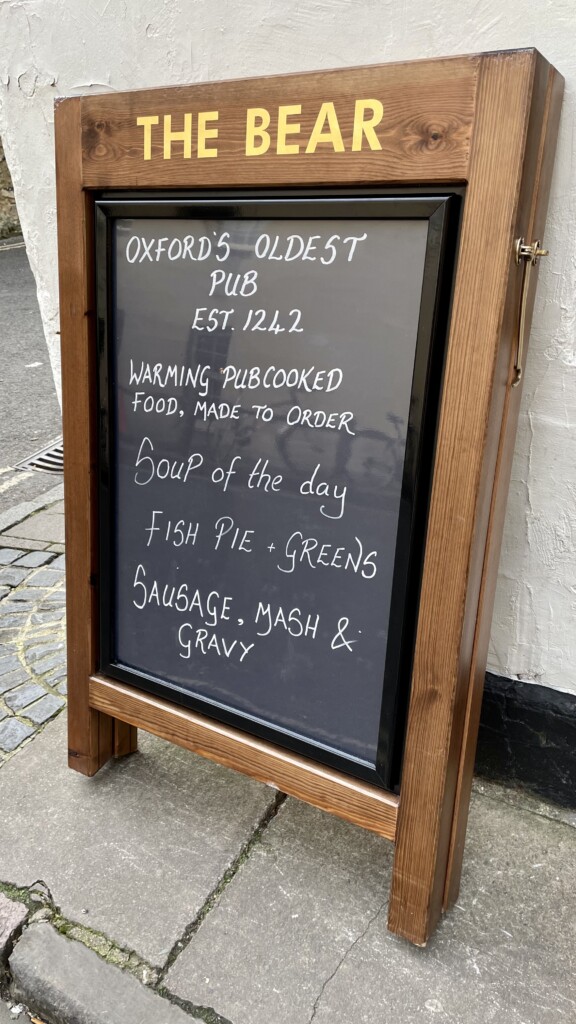 THE BEAR
OXFORD'S OLDEST
PUB
EST. 1242
WARMING PUBCOOKED
FOOD, MADE TO ORDER
Soup of the day
FISH PIE + GREENS
SAUSAGE, MASH &
GRAVY